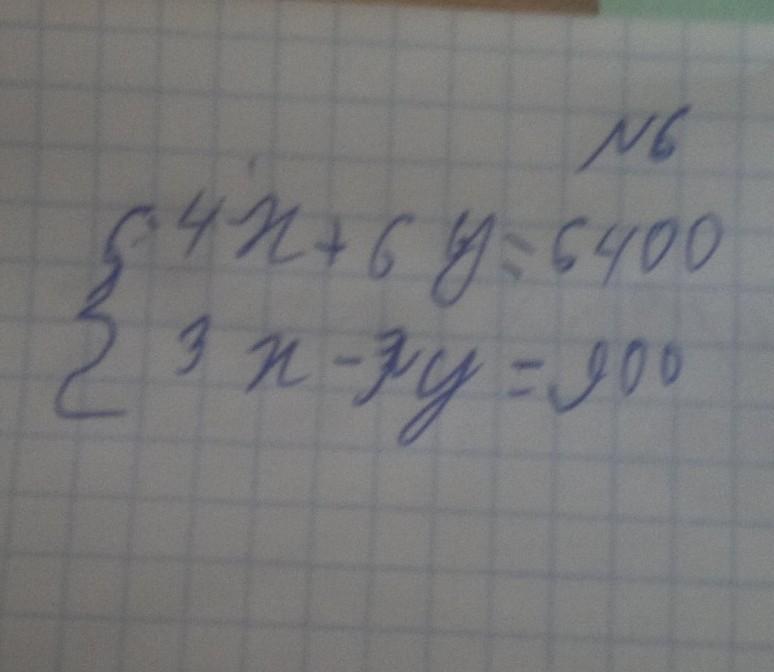 N6
4x+6y=6400
3x-3y=900